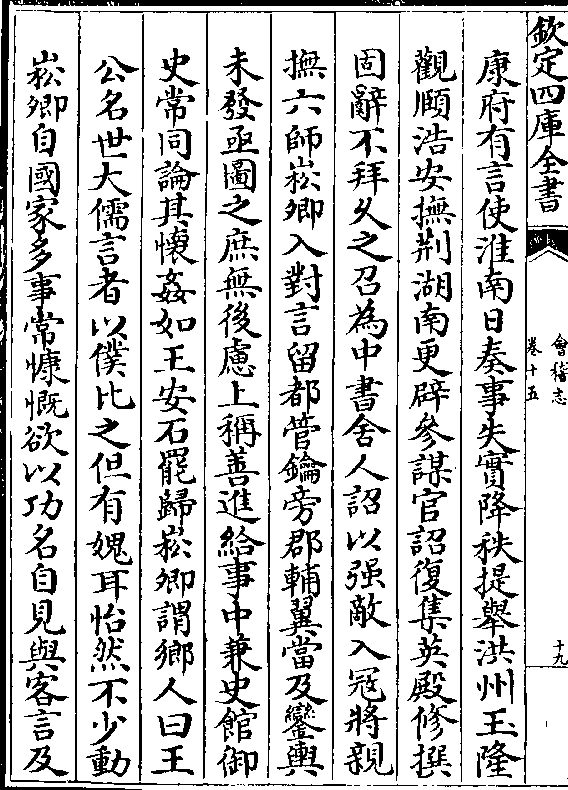 欽定四庫全書
會稽志
卷十五
十九
康府有言使淮南日奏事失實降秩提舉洪州玉隆
觀頤浩安撫荆湖南更辟參謀官詔復集英殿修撰
固辭不拜久之召為中書舍人詔以强敵入冦將親
撫六師崧卿入對言留都管鑰旁郡輔翼當及鑾輿
未發亟圖之庶無後慮上稱善進給事中兼史館御
史常同論其懷姦如王安石罷歸崧卿謂鄉人曰王
公名世大儒言者以僕比之但有媿耳怡然不少動
崧卿自國家多事常慷慨欲以功名自見與客言及